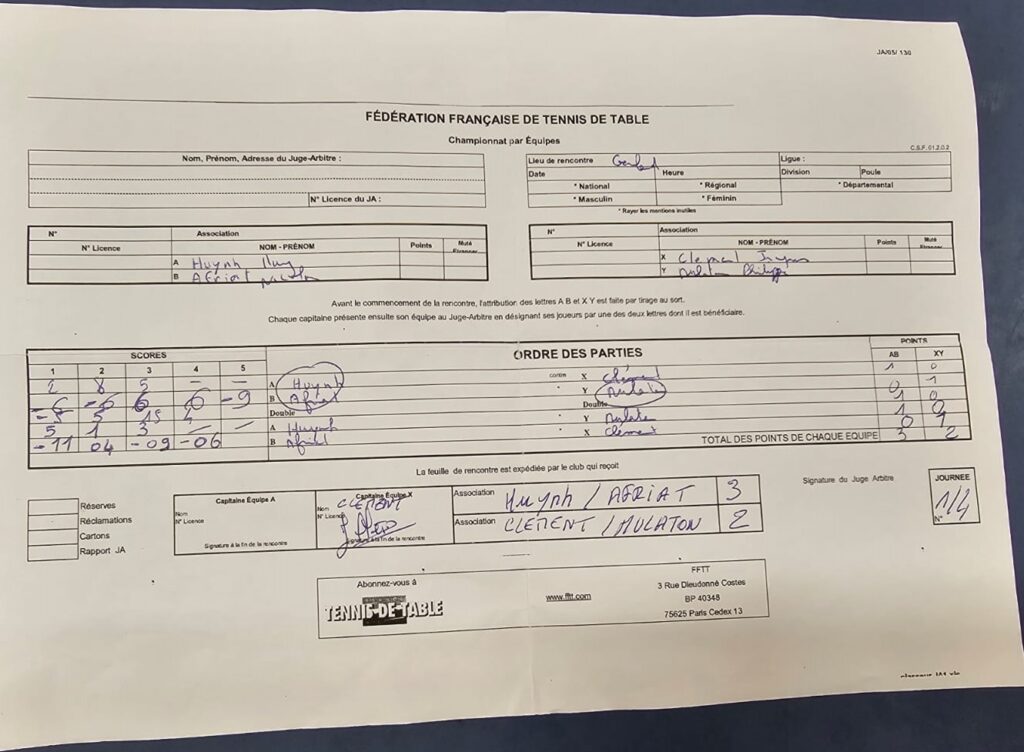 JA/05/ 130
FÉDÉRATION FRANÇAISE DE TENNIS DE TABLE
Championnat par Équipes
C.S.F. 01.2.0.2
Nom, Prénom, Adresse du Juge-Arbitre :
N° Licence du JA :
Lieu de rencontre Ligue :
Date Heure Division Poule
* National * Régional * Départemental
* Masculin * Féminin
* Rayer les mentions inutiles
N° Association
N° Licence NOM - PRÉNOM Points Muté
A Huynh Huy
B AFRIAT
N° Association
N° Licence NOM - PRÉNOM Points Muté
X Clement
Y Philippe
Avant le commencement de la rencontre, l'attribution des lettres A B et X Y est faite par tirage au sort.
Chaque capitaine présente ensuite son équipe au Juge-Arbitre en désignant ses joueurs par une des deux lettres dont il est bénéficiaire.
SCORES ORDRE DES PARTIES POINTS
1 2 3 4 5 AB XY
2 8 5 - - A Huynh contre X Clément 1 0
-6 -6 6 6 -9 B Afriat Y 0 1
-5 5 15 4 Double Double 1 0
5 1 3 - - A Huynh Y 1 0
-11 04 -09 -06 B Afriat X Clément 0 1
TOTAL DES POINTS DE CHAQUE EQUIPE 3 2
La feuille de rencontre est expédiée par le club qui reçoit
Réserves
Réclamations
Cartons
Rapport JA
Capitaine Équipe A
Nom
N° Licence
Signature à la fin de la rencontre
Capitaine Équipe X
Nom CLEMENT
N° Licence
Signature à la fin de la rencontre
Association Huynh / AFRIAT 3
Association CLEMENT / MULATON 2
Signature du Juge Arbitre
JOURNEE
1/4
N°
Abonnez-vous à
TENNIS-DE-TABLE
www.fftt.com
FFTT
3 Rue Dieudonné Costes
BP 40348
75625 Paris Cedex 13